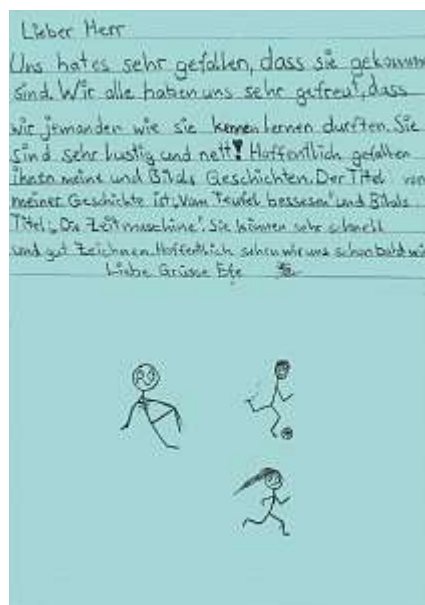 Lieber Herr
Uns hat es sehr gefallen, dass sie gekomm
sind. Wir alle haben uns sehr gefreut, dass
wir jemanden wie sie kennen lernen durften. Sie
sind sehr lustig und nett! Hoffentlich gefallen
ihnen meine und Bilals Geschichten. Der Titel von
meiner Geschichte ist „Vom Teufel besessen" und Bilals
Titel „Die Zeitmaschine". Sie können sehr schnell
und gut Zeichnen. Hoffentlich sehen wir uns schon bald wi
Liebe Grüsse Efe